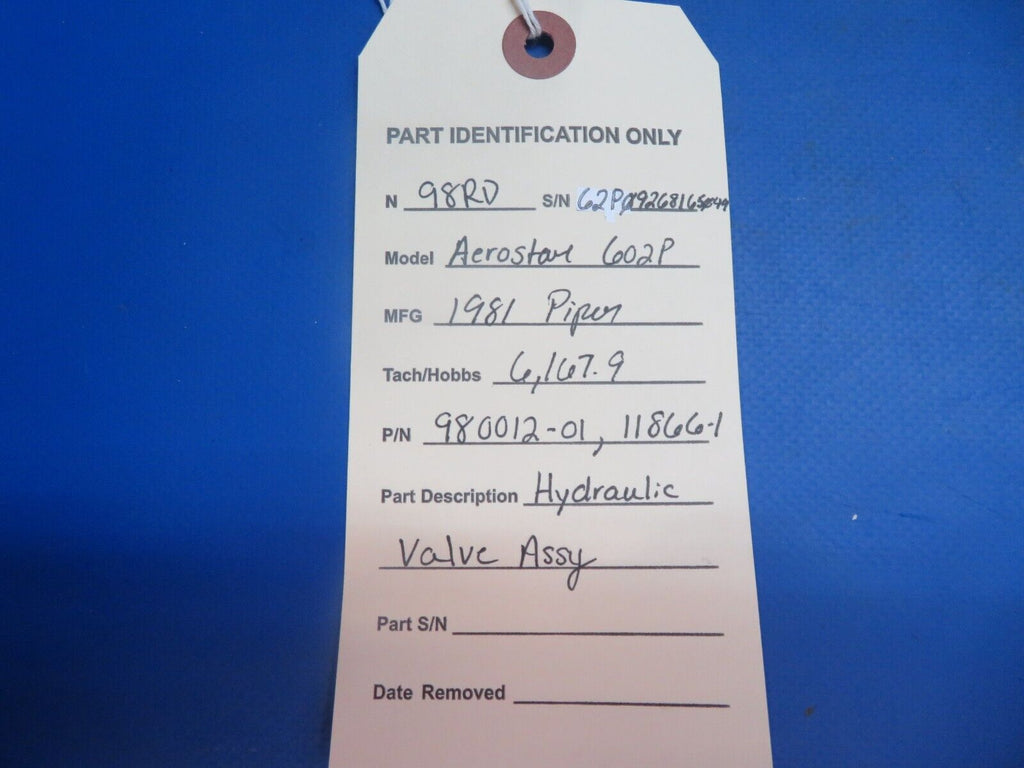 PART IDENTIFICATION ONLY
N 98RD S/N 62P
Model Aerostar 602P
MFG 1981 Piper
Tach/Hobbs 6,167.9
P/N 980012-01, 11866-1
Part Description Hydraulic
Valve Assy
Part S/N
Date Removed